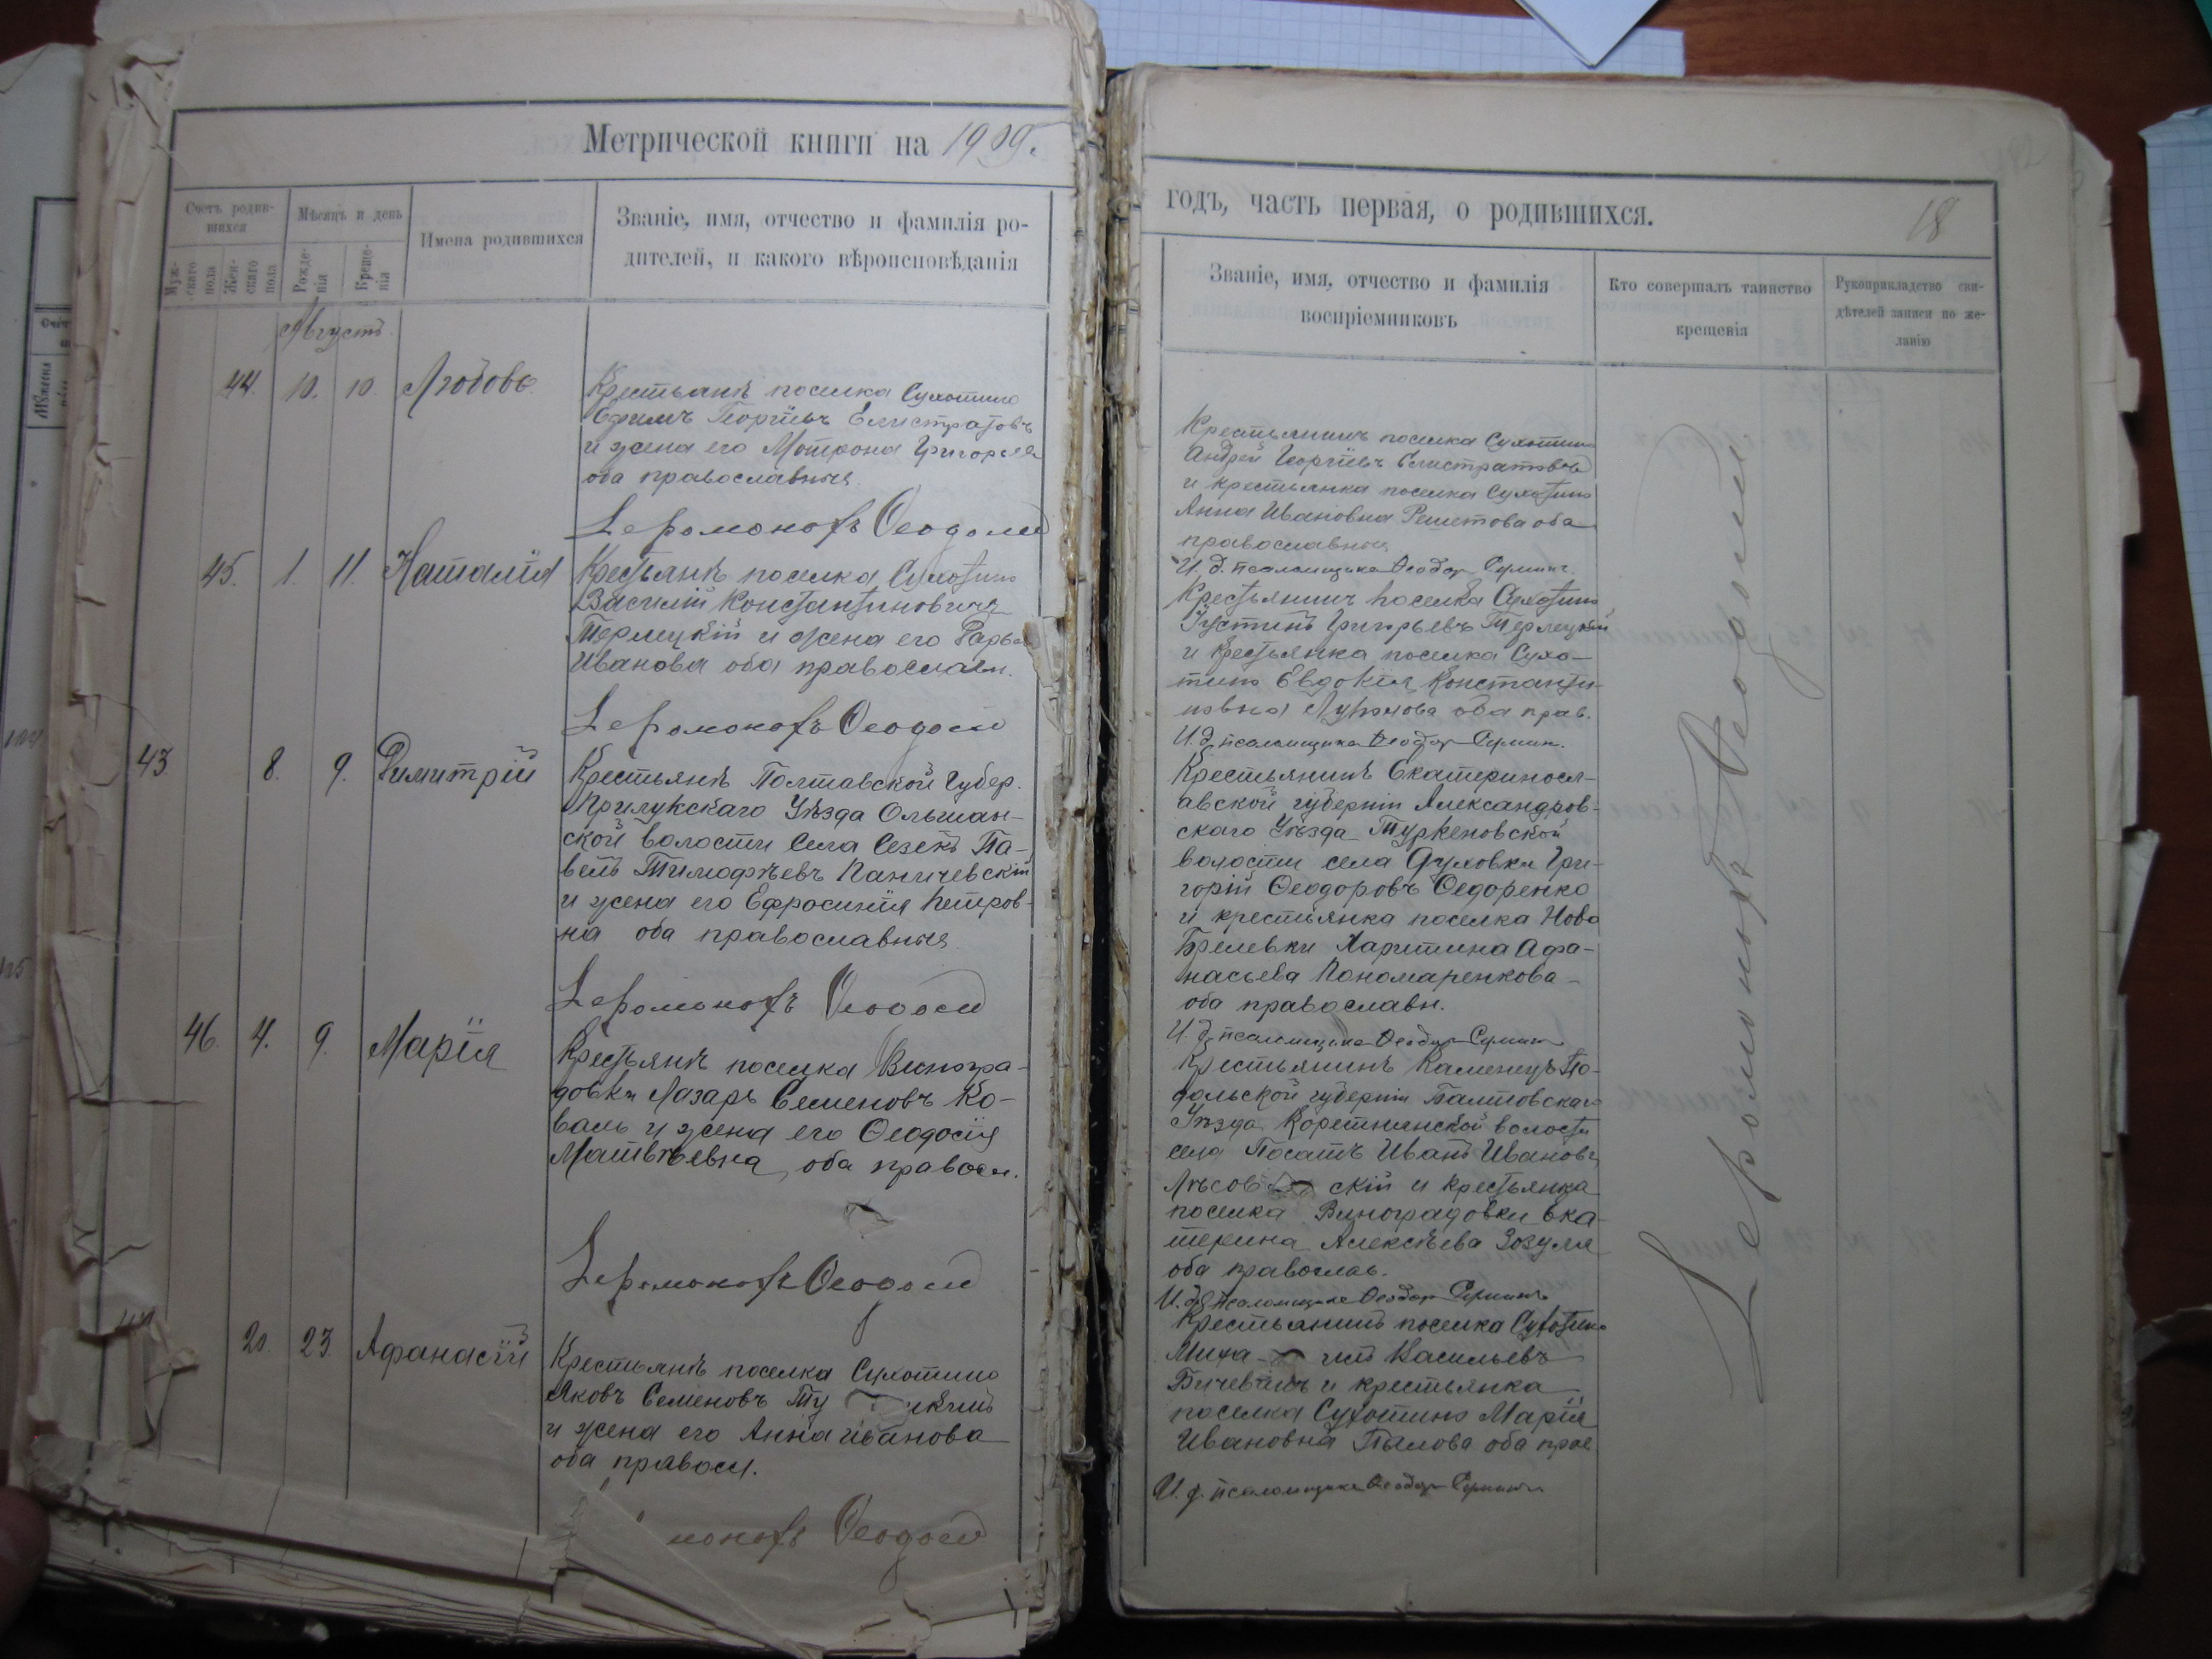 Метрической книги на 1909.
Счетъ родив-
шихся
Мѣсяцъ и день
Имена родившихся
Званіе, имя, отчество и фамилія ро-
дителей, и какого вѣроисповѣданія
Муж-
скаго
пола
Жен-
скаго
пола
Рожде-
нія
Креще-
нія
Августъ.
44. 10. 10. Любовь
Крестьянъ поселка Сухотино
Ефимъ Георгіевъ Елистратовъ
и жена его Мотрона Григорьева
оба православныя
Іеромонахъ Ѳеодосій
45. 1. 11. Наталія
Крестьянъ поселка Сухотино
Василій Константиновичъ
Терлецкій и жена его Дарья
Иванова оба православн.
Іеромонахъ Ѳеодосій
43 8. 9. Димитрій
Крестьянъ Полтавской Губер.
Прилукскаго Уѣзда Ольшан-
ской волости Села Сезекъ Па-
велъ Тимофѣевъ Паничевскій
и жена его Ефросинія Петров-
на оба православныя
Іеромонахъ Ѳеодосій
46. 4. 9. Марія
Крестьянъ поселка Виногра-
довки Лазарь Семеновъ Ко-
валь и жена его Ѳеодосія
Матвѣевна, оба правосл.
Іеромонахъ Ѳеодосій
20. 23 Афанасій
Крестьянъ поселка Сухотино
Яковъ Семеновъ
и жена его Анна Иванова
оба правосл.
монахъ Ѳеодосій
годъ, часть первая, о родившихся.
18
Званіе, имя, отчество и фамилія
воспріемниковъ
Кто совершалъ таинство
крещенія
Рукоприкладство сви-
дѣтелей записи по же-
ланію
Крестьянинъ поселка Сухотино
Андрей Георгіевъ Елистратовъ
и крестьянка поселка Сухотино
Анна Ивановна Решетова оба
православныя
И. д. псаломщика Ѳеодор
Крестьянинъ поселка Сухотино
Густинъ Григорьевъ Терлецкій
и крестьянка поселка Сухо-
тино Евдокія Константи-
новна оба прав.
И. д. псаломщика Ѳеодор
Крестьянинъ Екатеринося-
авской губерніи Александров-
скаго Уѣзда Туркеновской
волости села Духовки Гри-
горій Ѳеодоровъ Ѳедоренко
и крестьянка поселка Ново
Брелевки Харитина Афа-
насьева Пономаренкова
оба православн.
И. д. псаломщика Ѳеодор
Крестьянинъ Каменецъ По-
дольской губерніи Балтовскаго
Уѣзда волости
села Посатъ Иванъ Ивановъ
Лѣсов скій и крестьянка
поселка Виноградовки Ека-
терина Алексѣева Зозуля
оба православ.
И. д. псаломщика Ѳеодор
Крестьянинъ поселка Сухотино
Миха илъ Васильевъ
Бичевинъ и крестьянка
поселка Сухотино Марія
Ивановна Пылова оба прав
И. д. псаломщика Ѳеодор
Іеромонахъ Ѳеодосій